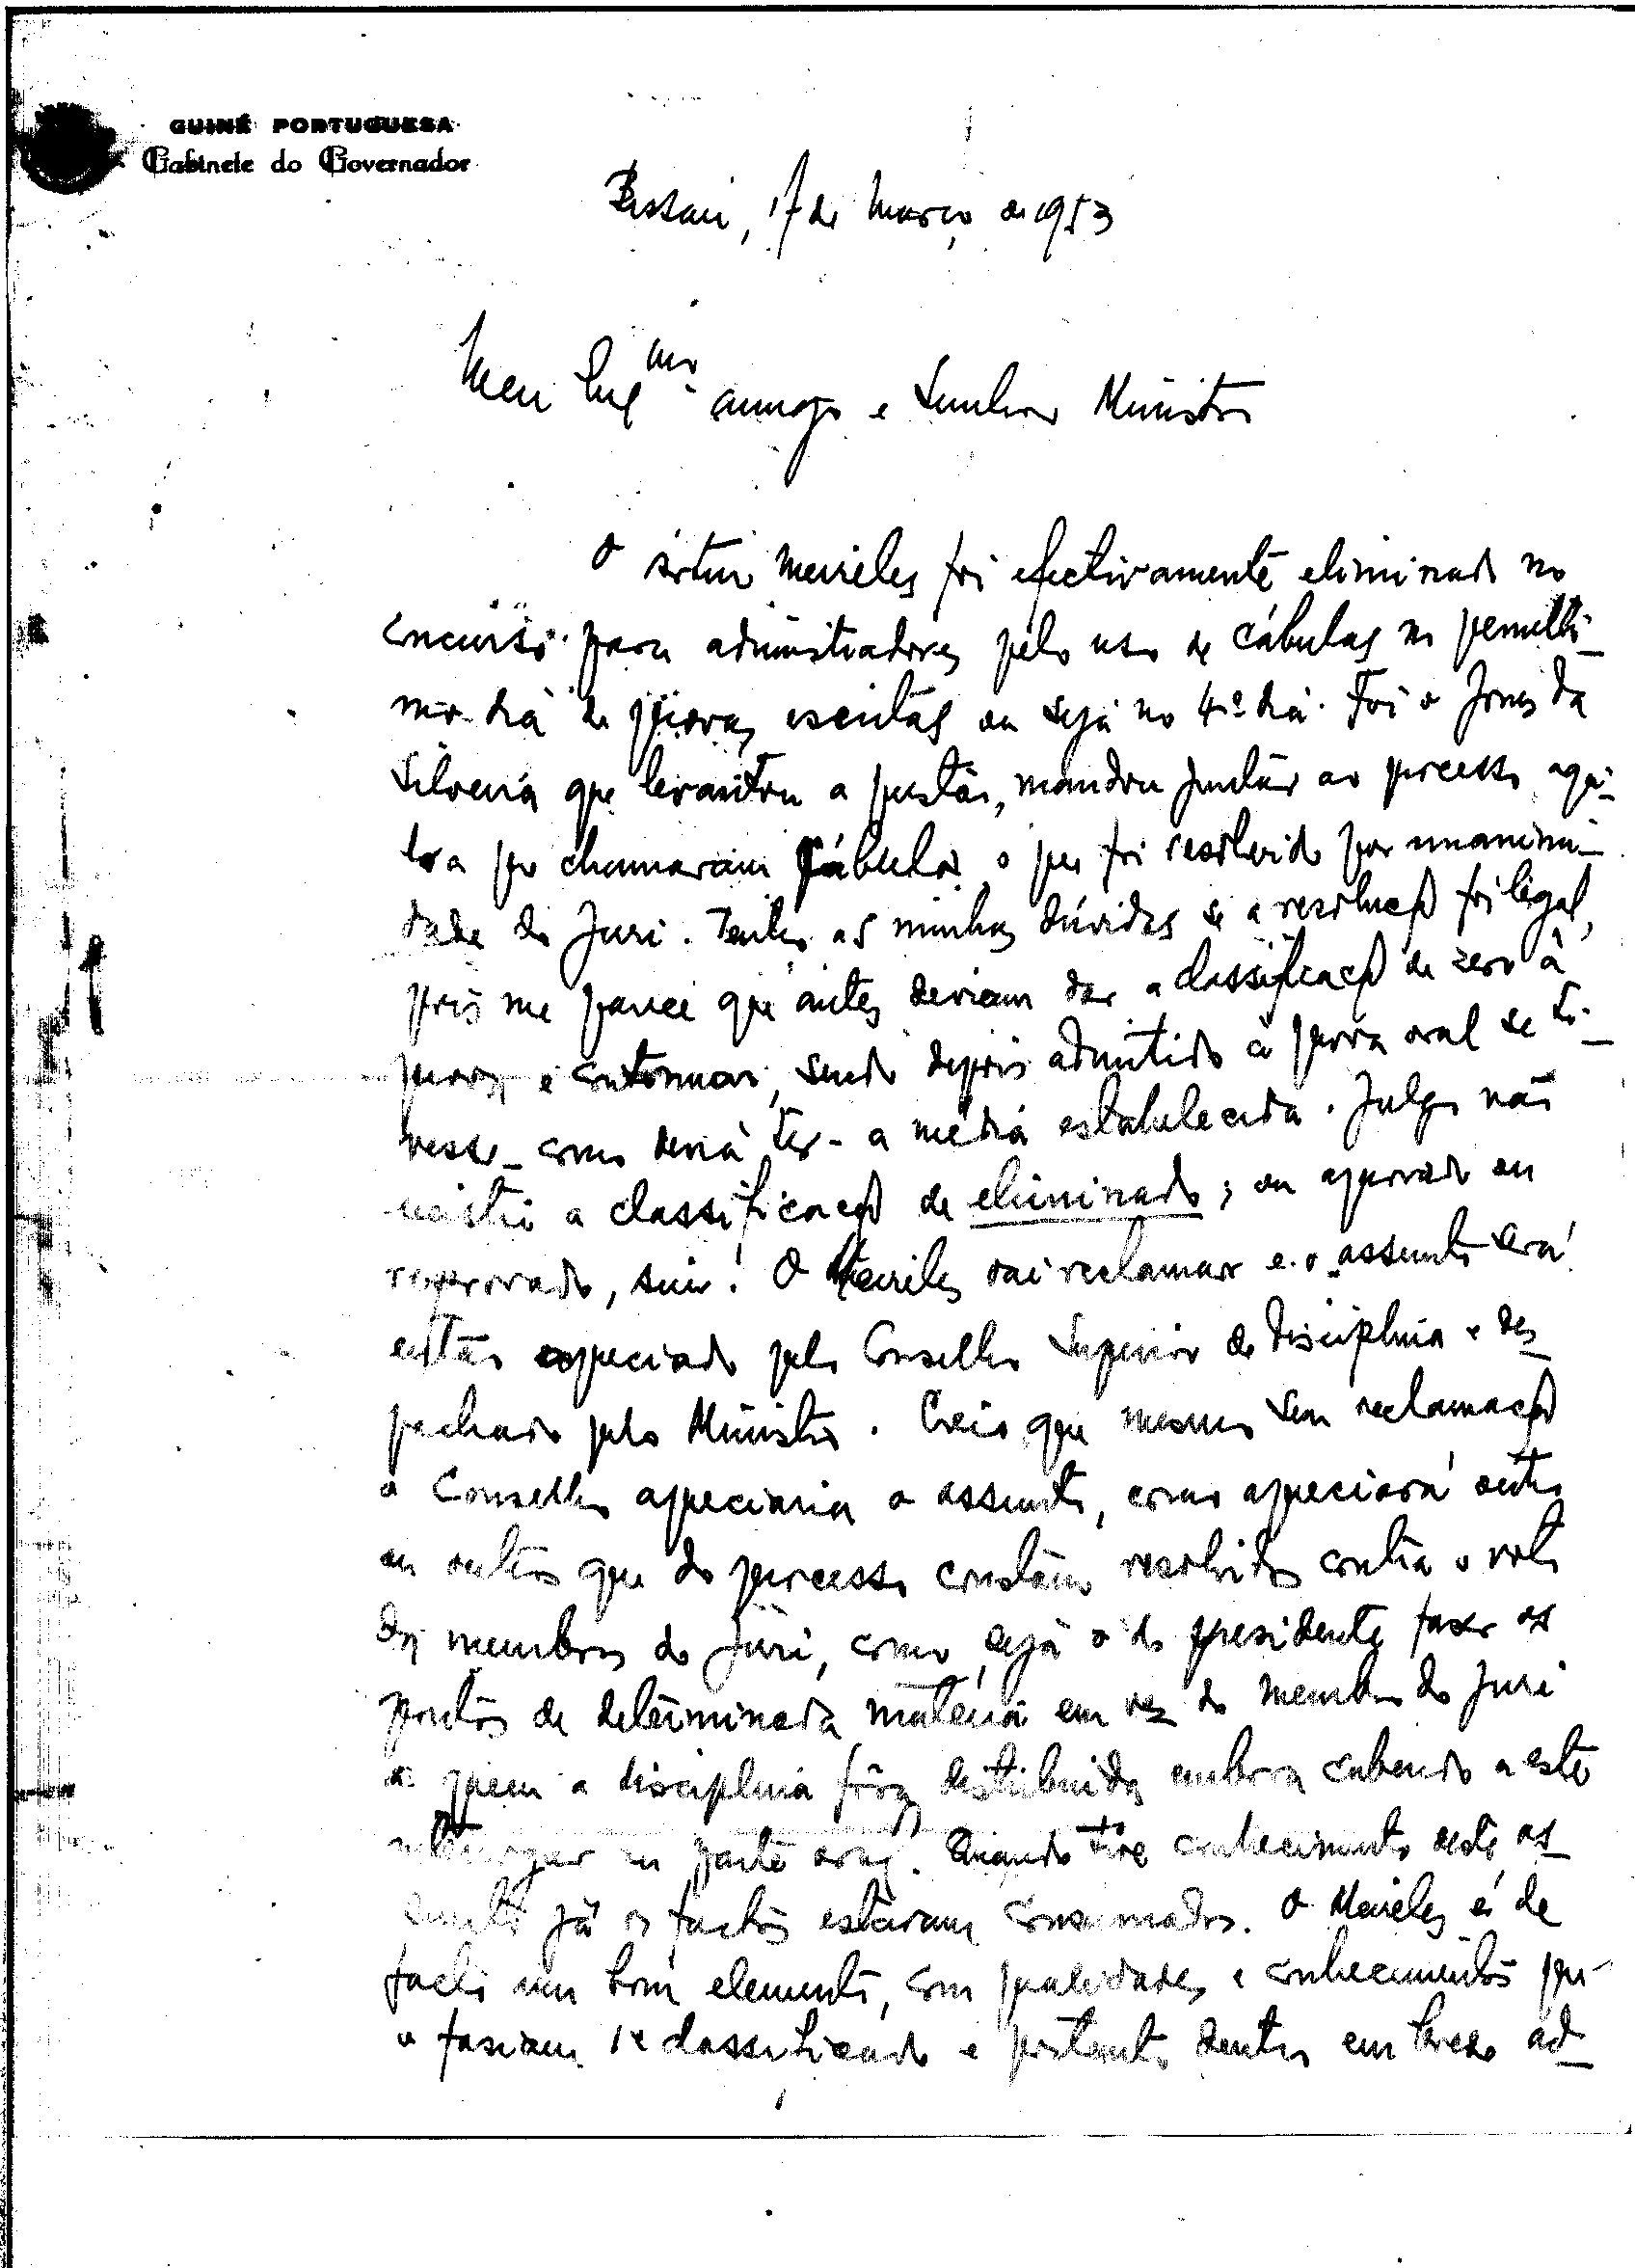 GUINÉ PORTUGUESA
Gabinete do Governador
Bissau, 17 de Março de 1953
Meu Exmo amigo e Senhor Ministro
O Artur Meireles foi efectivamente eliminado no
concurso para administradores pelo uso de cábulas no penulti-
mo dia de provas escritas ou seja no 4º dia. Foi o Jones da
Silveira que levantou a questão, mandou juntar ao processo aqui-
lo a que chamaram cábulas, o que foi resolvido por unanimi-
dade do Juri. Tenho as minhas dúvidas se a resolução foi legal,
pois me parece que antes deviam dar a classificação de zero à
prova e continuar, sendo depois admitido à prova oral se ti-
vesse - como devia ter - a média estabelecida. Julgo não
existir a classificação de eliminado; ou aprovado ou
reprovado, sim! O Meireles vai reclamar e o assunto será
então apreciado pelo Conselho Superior de Disciplina e des-
pachado pelo Ministro. Creio que mesmo sem reclamação
o Conselho apreciaria o assunto, como apreciará outro
ou outros que do processo constam resolvidos contra o voto
dos membros do júri, como seja o do presidente fazer os
pontos de determinada matéria em vez do membro do Juri
a quem a disciplina fôra distribuida embora cabendo a este
interrogar na parte oral. Quando tive conhecimento deste as-
sunto já os factos estavam consumados. O Meireles é de
facto um bom elemento, com qualidades e conhecimentos que
o faziam 1º classificado e portanto dentro em breve ad-